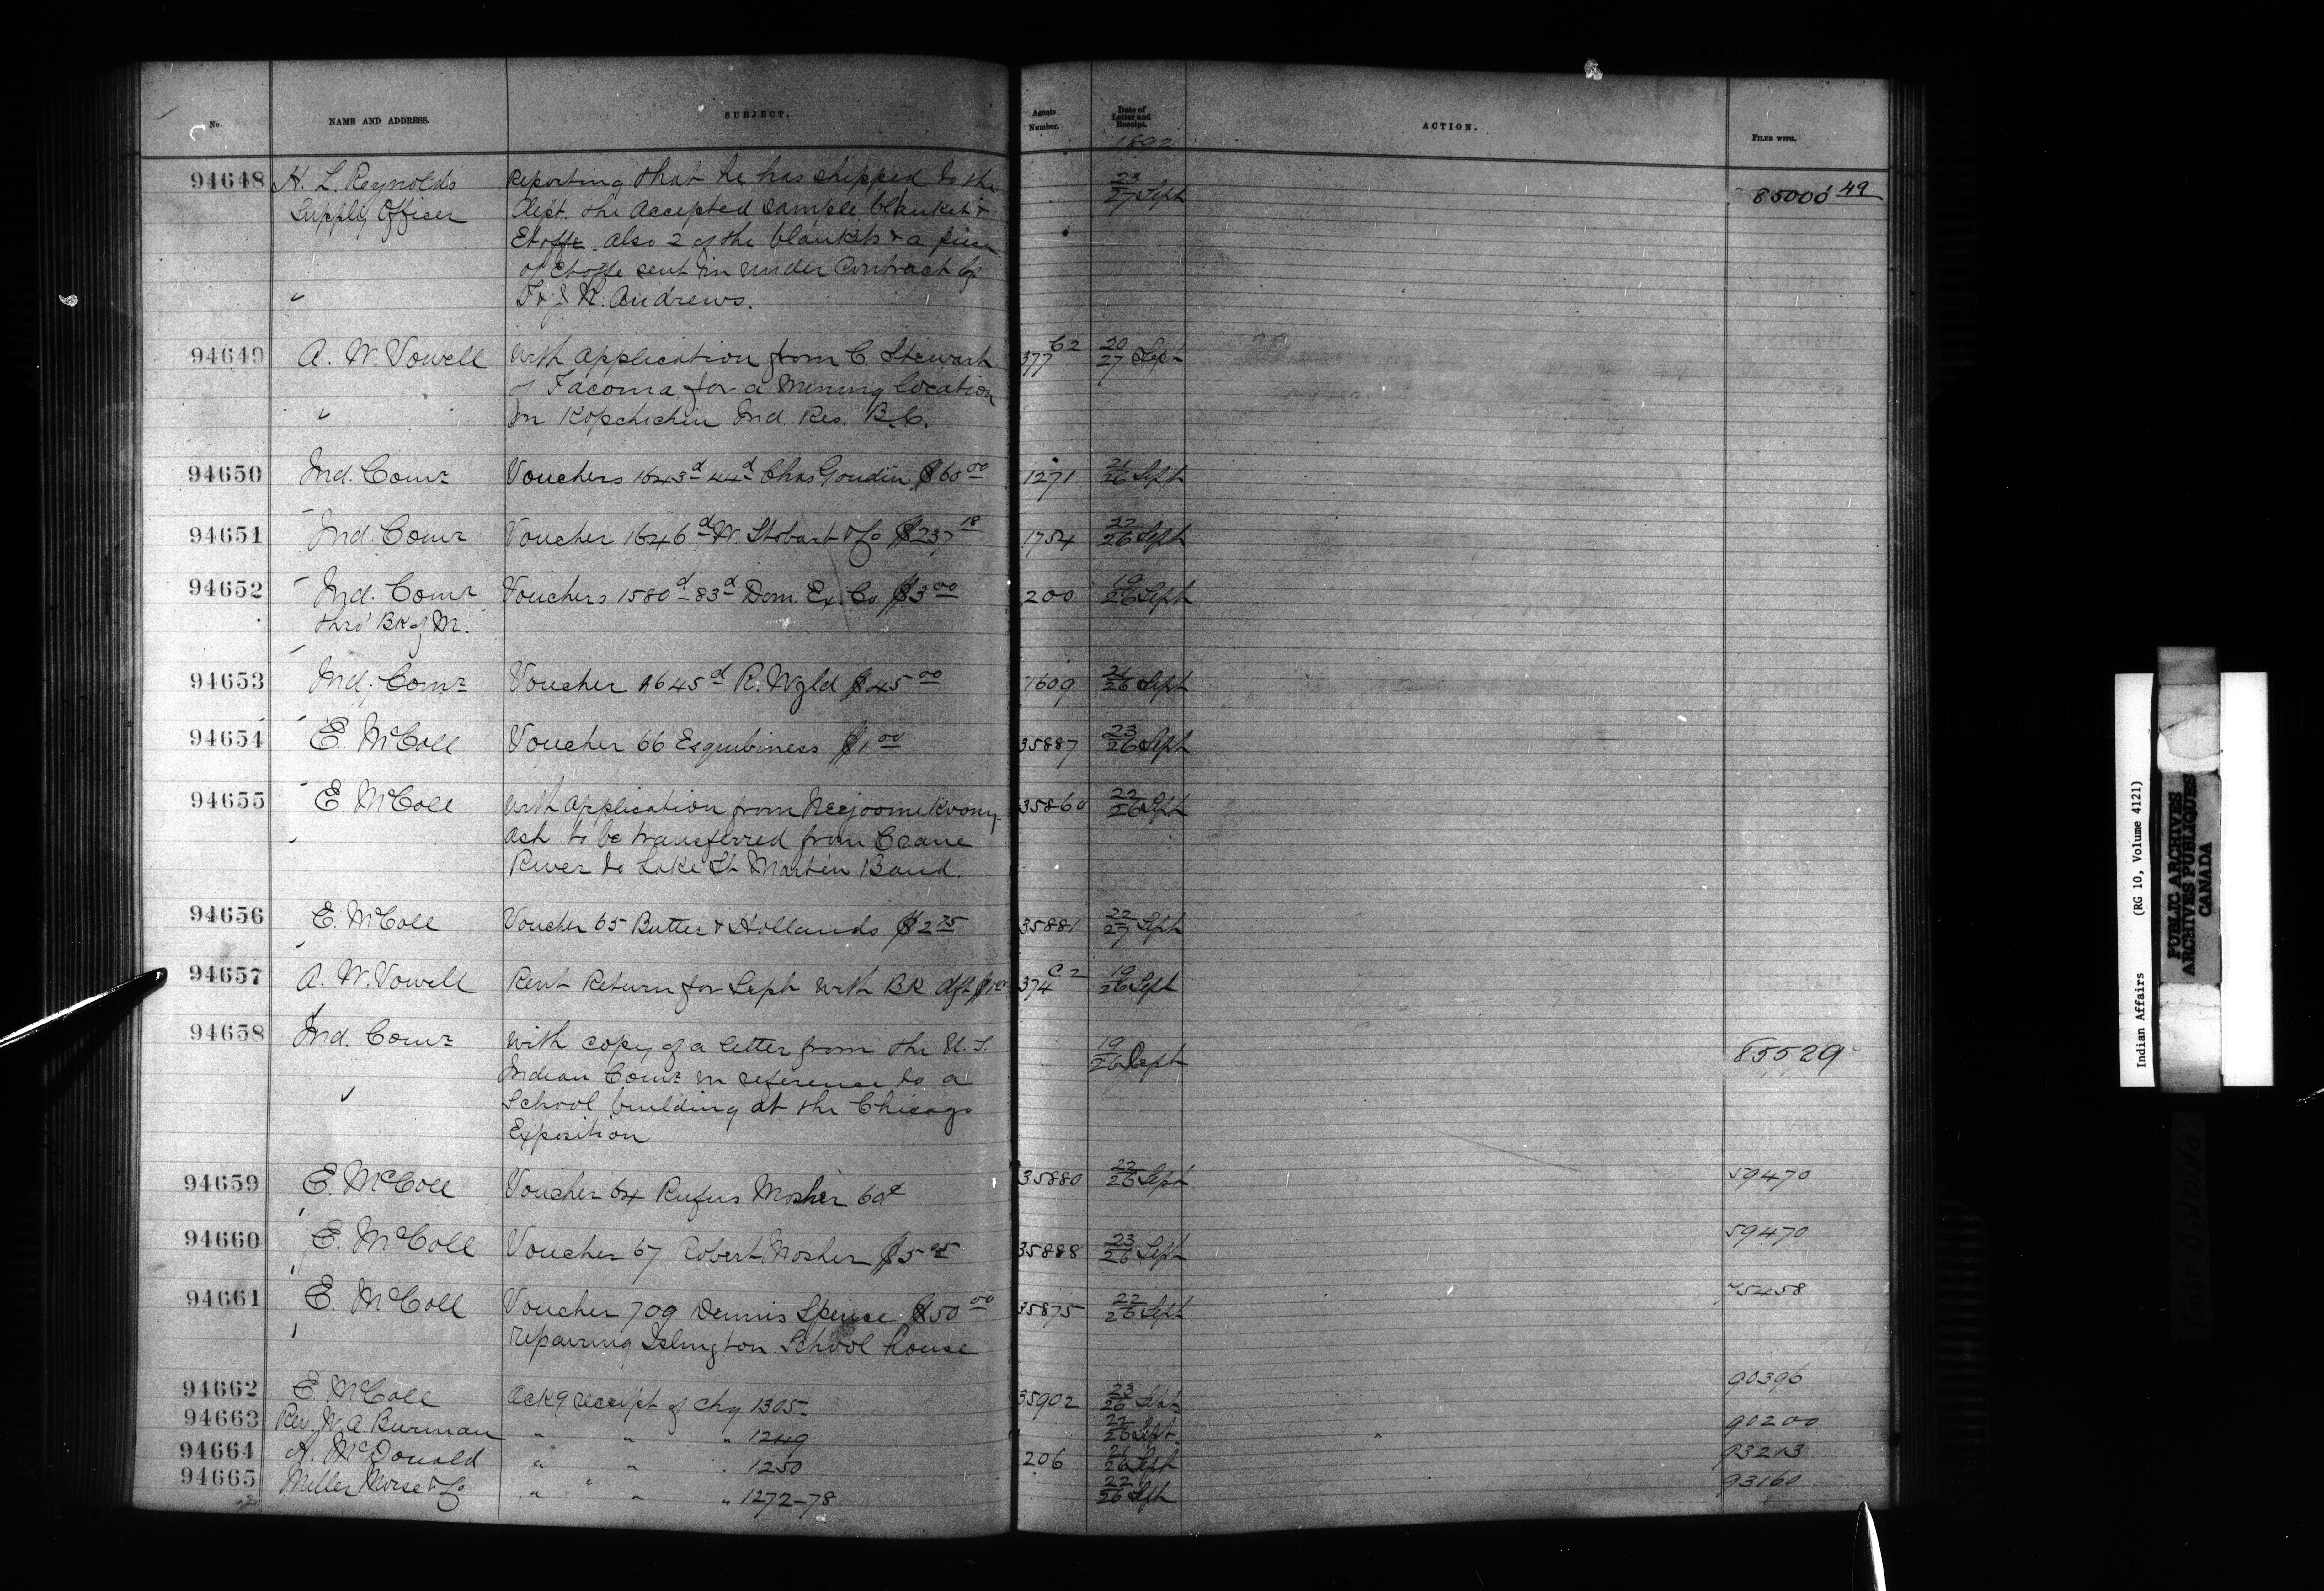 No. NAME AND ADDRESS. SUBJECT. Agents Number. Date of Letter and Receipt. ACTION. FILED WITH.
1892
94648 H. L. Reynolds Reporting that he has shipped to the 23/27 Sept 85000 49
Supply Officer Dept. the accepted sample blanket &
Etoffe also 2 of the blankets & a piece
of Etoffe sent in under Contract by
Andrews.
94649 A. W. Vowell With application from C. Stewart 377 C2 20/27 Sept
of Tacoma for a Mining location
on Kopchichin Ind. Res. B.C.
94650 Ind. Comr Vouchers 1643d 44d Chas Goudin $60 00 1271 21/26 Sept
94651 Ind. Comr Voucher 1646d W. Stobart & Co $237 18 1754 22/26 Sept
94652 Ind. Comr Vouchers 1580d 83d Dom. Ex. Co $3 00 200 19/26 Sept
thro' Bk of M.
94653 Ind. Comr Voucher 1645d R. Wyld $45 00 1609 21/26 Sept
94654 E. McColl Voucher 66 Esquibiness $1 00 35887 23/26 Sept
94655 E. McColl With application from 35860 22/26 Sept
ash to be transferred from Crane
River to Lake St Martin Band.
94656 E. McColl Voucher 65 Butter & Hollands $2 75 35881 22/27 Sept
94657 A. W. Vowell Rent Return for Sept with BK dft $1 00 374 C2 19/26 Sept
94658 Ind. Comr With copy of a letter from the U.S. 19/26 Sept 85529
Indian Comr in reference to a
School building at the Chicago
Exposition
94659 E. McColl Voucher 64 Rufus Mosher 60c 35880 22/26 Sept 59470
94660 E. McColl Voucher 67 Robert Mosher $5 35888 23/26 Sept 59470
94661 E. McColl Voucher 709 Dennis Spence $50 00 35875 22/26 Sept 75458
repairing Islington School house
94662 E. McColl Ackg receipt of chq 1305 35902 23/26 Sept 90396
94663 Rev. W. A. Burman " " " 1249 22/26 Sept. 90200
94664 A. McDonald " " " 1250 206 26 Sept 93213
94665 Miller Morse & Co " " " 1272-78 22/26 Sept 93160
Indian Affairs (RG 10, Volume 4121)
PUBLIC ARCHIVES
ARCHIVES PUBLIQUES
CANADA